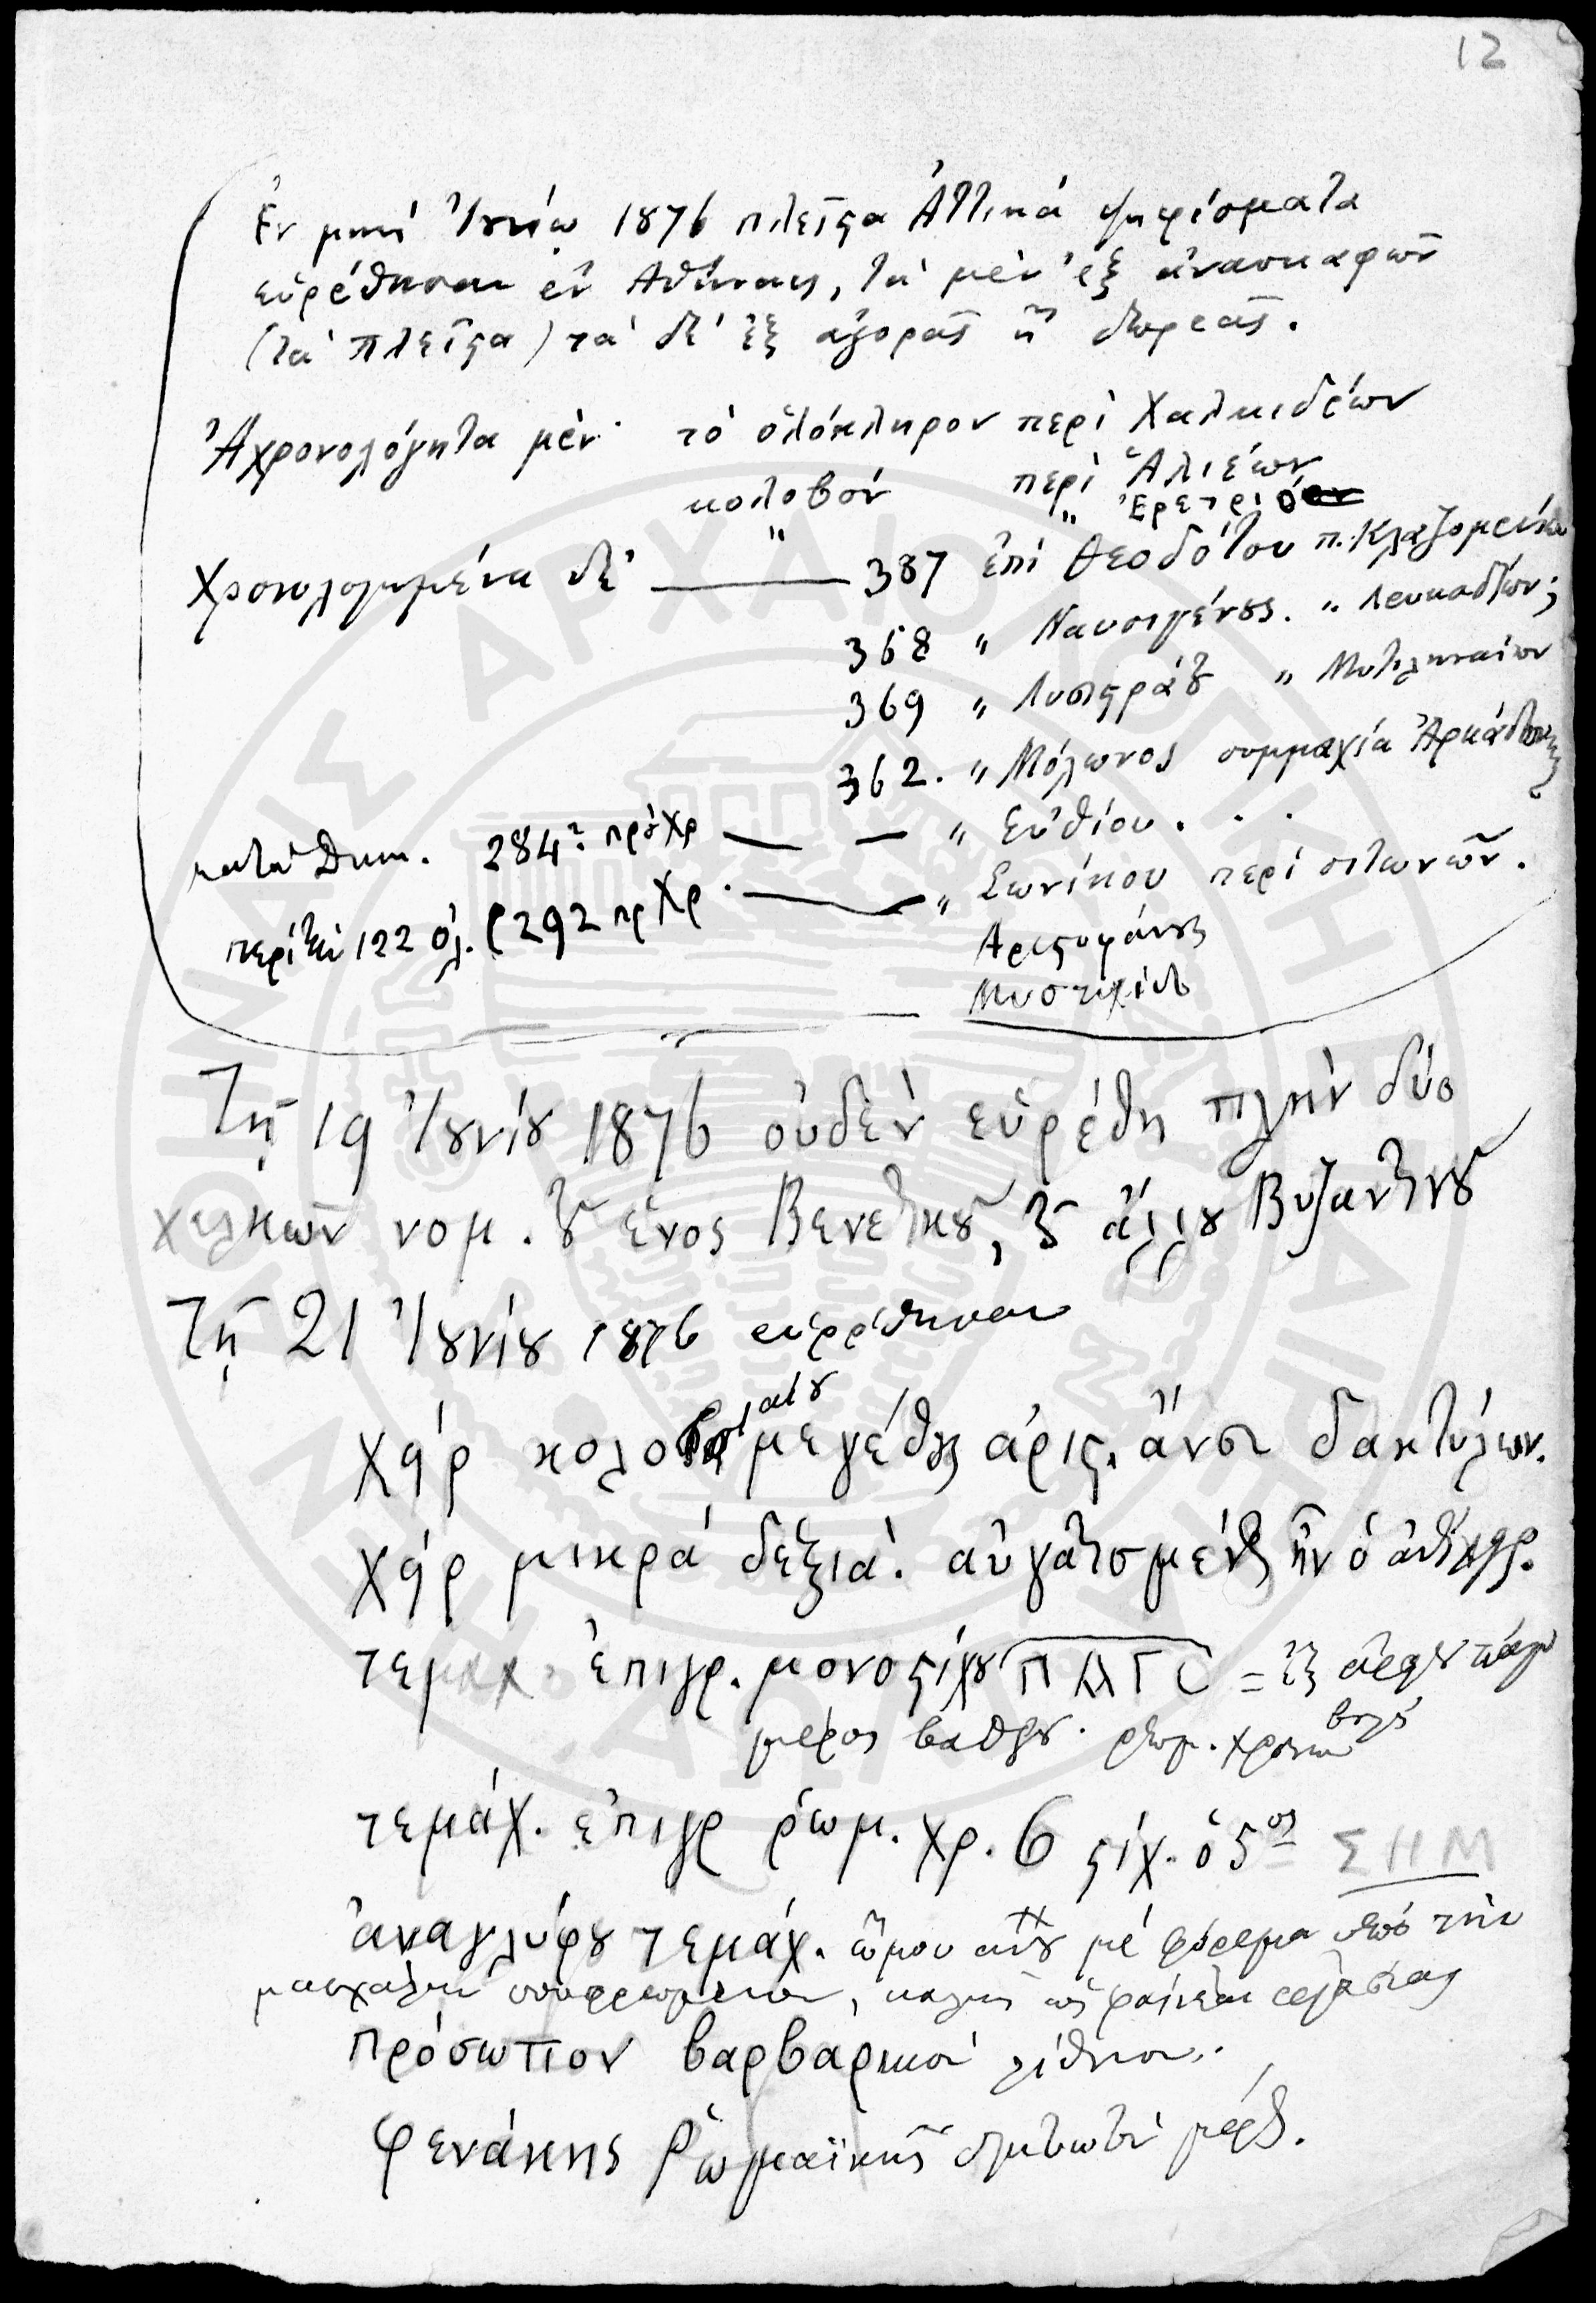 12
Ἐν μηνὶ Ἰουνίῳ 1876 πλεῖστα Ἀττικὰ ψηφίσματα
εὑρέθησαν ἐν Ἀθήναις, τὰ μὲν ἐξ ἀνασκαφῶν
(τὰ πλεῖστα) τὰ δὲ ἐξ ἀγορᾶς ἢ δωρεᾶς.
Ἀχρονολόγητα μὲν· τὸ ὁλόκληρον περὶ Χαλκιδέων
κολοβὸν περὶ Ἁλιέων
" " Ἐρετρι
Χρονολογημένα δὲ 387 ἐπὶ Θεοδότου π. Κλαζομενίων
368 " Ναυσιγένους. " Λευκαδίων;
369 " Λυσιστράτου " Μυτιληναίων
362. " Μόλωνος συμμαχία Ἀρκάδων
κατὰ 284 πρὸ Χρ — — " Εὐθίου . . .
περὶ τὴν 122 Ὀλ. (292 πρ Χρ. — " Σωνίκου περὶ σιτωνῶν.
Ἀριστοφάνους
Μυστιχίδου
Τῇ 19 Ἰουνίου 1876 οὐδὲν εὑρέθη πλὴν δύο
χαλκῶν νομ. τοῦ ἑνὸς Βενετικοῦ, καὶ ἄλλου Βυζαντινοῦ
Τῇ 21 Ἰουνίου 1876 εὑρέθησαν
Χεὶρ κολοβὴ μεγέθους ἀριστ. ἄνευ δακτύλων.
Χεὶρ μικρὰ δεξιά.
τεμαχ. ἐπιγρ. μονοστίχου ΠΑΓΟ = ἐξ ἀρείου πάγου
βουλῆς
μέρος βάθρου. ῥωμ. χρόνων
τεμάχ. ἐπιγρ ῥωμ. χρ. 6 στίχ. ὁ 5ος ΣΗΜ
ἀναγλύφου τεμάχ. ὤμου μὲ φόρεμα ὑπὸ τὴν
μασχάλην , καλῆς ὡς φαίνεται ἐργασίας
πρόσωπον βαρβαρικὸν λίθινον.
φενάκης Ῥωμαϊκῆς